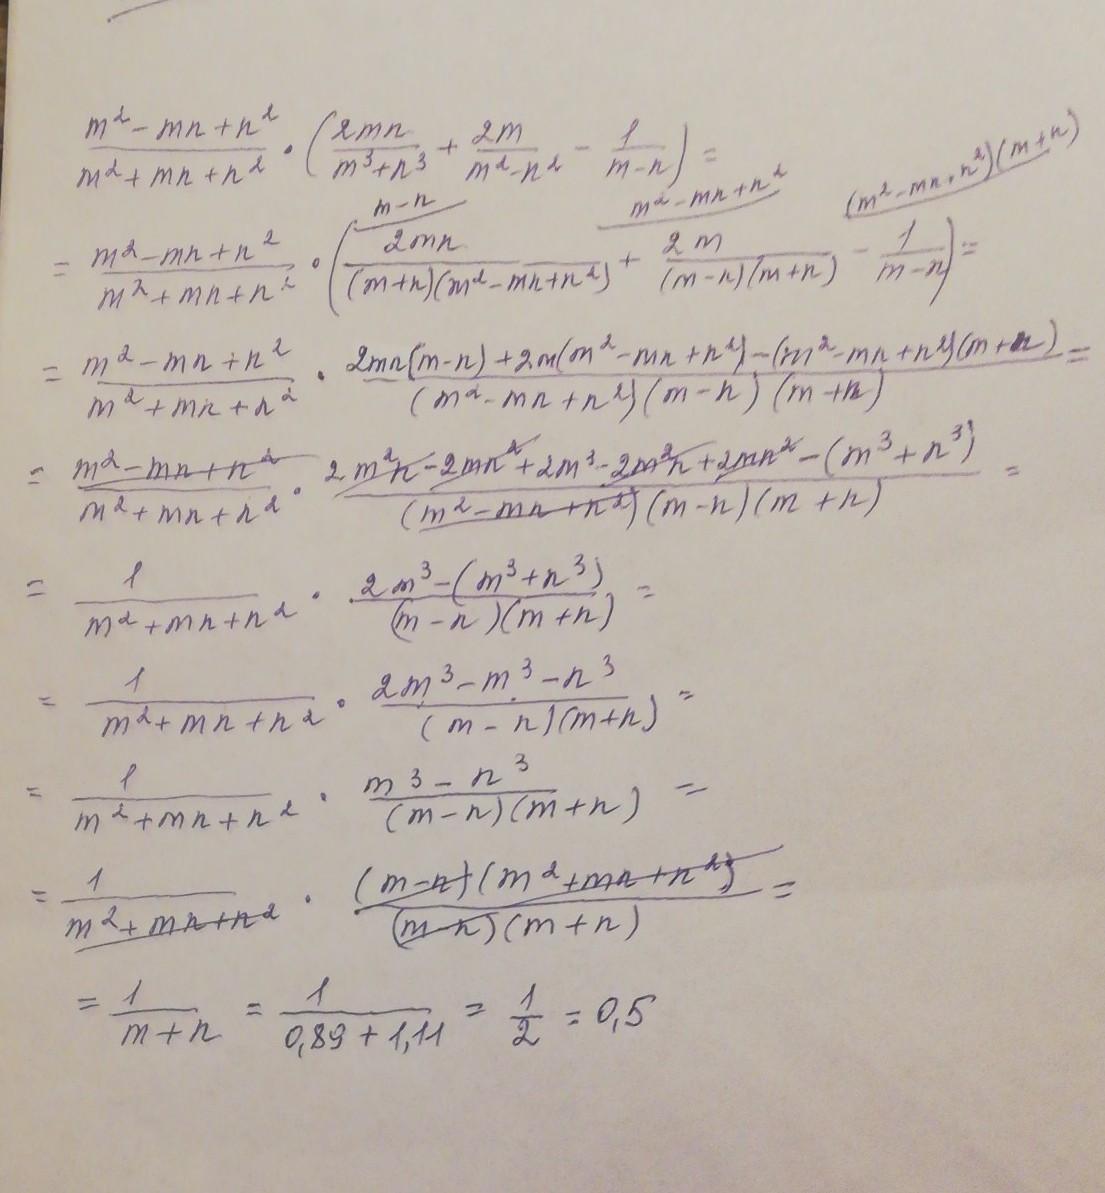 (m² - mn + n²)/(m² + mn + n²) · (2mn/(m³ + n³) + 2m/(m² - n²) - 1/(m - n)) =
m - n m² - mn + n² (m² - mn + n²)(m + n)
= (m² - mn + n²)/(m² + mn + n²) · (2mn/((m + n)(m² - mn + n²)) + 2m/((m - n)(m + n)) - 1/(m - n)) =
= (m² - mn + n²)/(m² + mn + n²) · (2mn(m - n) + 2m(m² - mn + n²) - (m² - mn + n²)(m + n))/((m² - mn + n²)(m - n)(m + n)) =
= (m² - mn + n²)/(m² + mn + n²) · (2m²n - 2mn² + 2m³ - 2m²n + 2mn² - (m³ + n³))/((m² - mn + n²)(m - n)(m + n)) =
= 1/(m² + mn + n²) · (2m³ - (m³ + n³))/((m - n)(m + n)) =
= 1/(m² + mn + n²) · (2m³ - m³ - n³)/((m - n)(m + n)) =
= 1/(m² + mn + n²) · (m³ - n³)/((m - n)(m + n)) =
= 1/(m² + mn + n²) · ((m - n)(m² + mn + n²))/((m - n)(m + n)) =
= 1/(m + n) = 1/(0,89 + 1,11) = 1/2 = 0,5